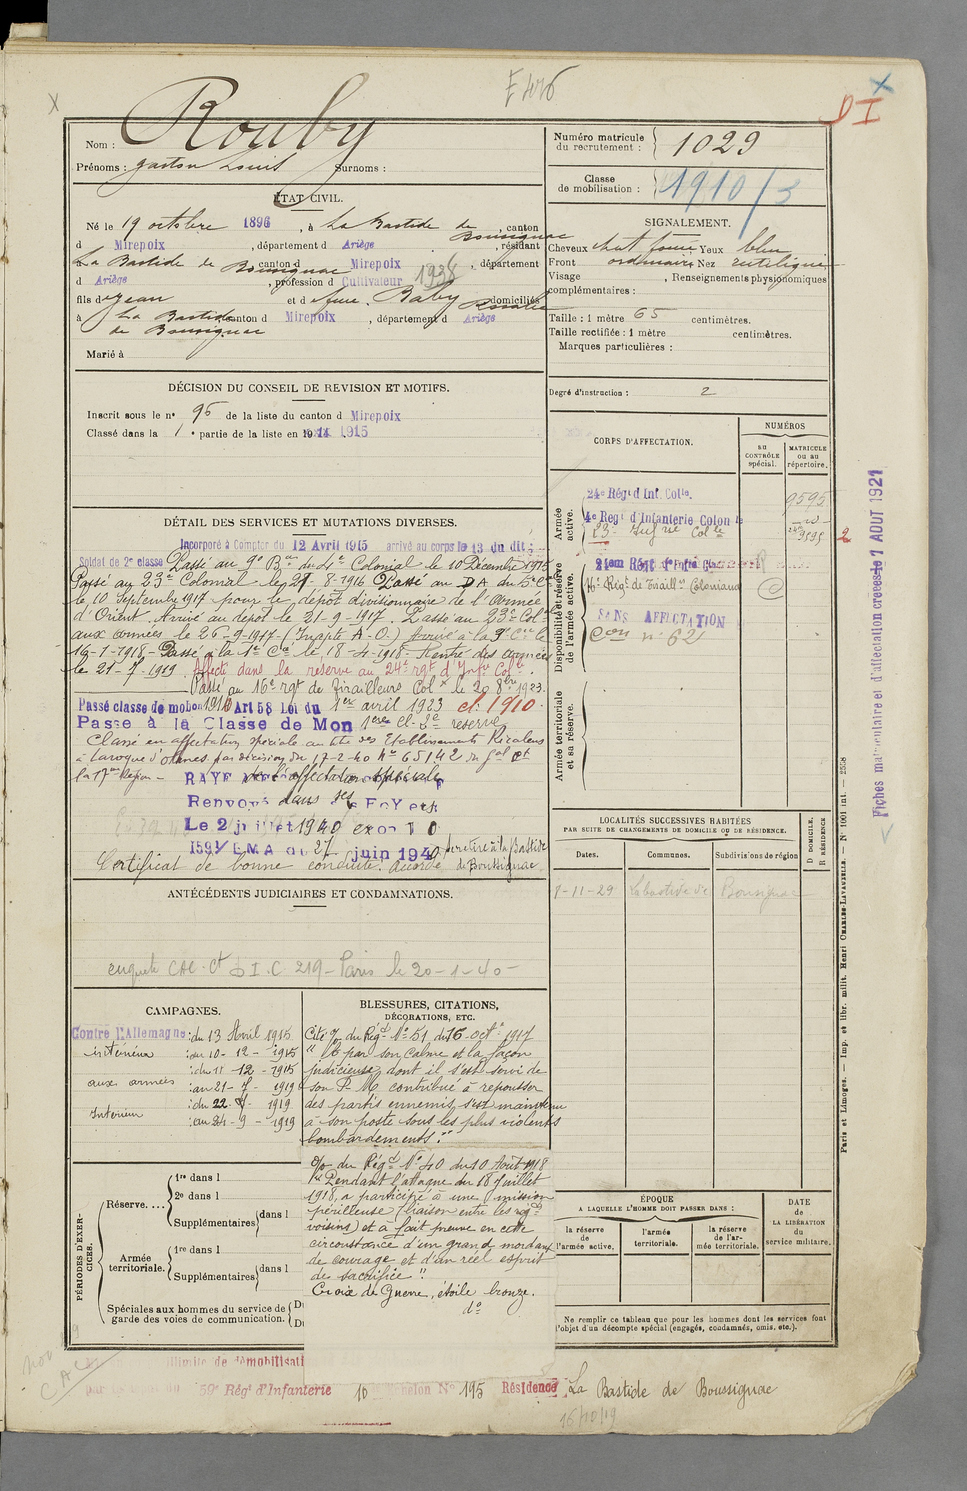 Rouby
Nom :
Prénoms : Gaston Louis Surnoms :
Numéro matricule du recrutement : 1029
Classe de mobilisation : 1910/3
ÉTAT CIVIL.
Né le 19 octobre 1896, à La Bastide de Bousignac, canton
d Mirepoix, département d Ariège, résidant
La Bastide de Bousignac canton d Mirepoix, département
d Ariège, profession d Cultivateur 1938
fils de Jean et d feue Baby Rosalie domiciliés
à La Bastide de Bousignac canton d Mirepoix, département d Ariège
Marié à
SIGNALEMENT.
Cheveux chat foncé Yeux bleu
Front ordinaire Nez rectiligne
Visage , Renseignements physionomiques
complémentaires :
Taille : 1 mètre 65 centimètres.
Taille rectifiée : 1 mètre centimètres.
Marques particulières :
Degré d'instruction : 2
DÉCISION DU CONSEIL DE REVISION ET MOTIFS.
Inscrit sous le n° 96 de la liste du canton d Mirepoix
Classé dans la 1e partie de la liste en 1915
CORPS D'AFFECTATION.
NUMÉROS
AU CONTRÔLE spécial.
MATRICULE ou au répertoire.
Armée active.
24e Régt d'Inf. Colle. 9595
4e Régt d'Infanterie Colon le
23e Infrie Colle
Disponibilité et réserve de l'armée active.
16e Régt de Tiraillrs Coloniaux
SANS AFFECTATION
Armée territoriale et sa réserve.
DÉTAIL DES SERVICES ET MUTATIONS DIVERSES.
Incorporé à Compter du 12 Avril 1915 arrivé au corps le 13 du dit
Soldat de 2e classe Passé au 9e Bon du 4e Colonial le 10 Décembre 1915
Passé au 23e Colonial le 21-8-1916 Passé au DA du 5e Cal
le 10 Septembre 1917 pour le dépôt divisionnaire de l'Armée
d'Orient. Arrivé au dépôt le 21-9-1917. Passé au 23e Col
aux armées le 26-9-1917 (Inapte A.O.) Arrivé à la 9e Cie le
16-1-1918 - Passé à la 1e Cie le 18-4-1918 - Rentré des armées
le 21-7-1919. Affecté dans la réserve au 24e rgt d'Infie Colle.
Passé au 16e rgt de Tirailleurs Colx le 20 8bre 1923.
Passé classe de mobon 1910 Art 58 Loi du 1er avril 1923 cl. 1910
Passe à la Classe de Mon 1ere cl. 2e réserve
Classé en affectation spéciale au titre des Etablissements Ricalens
à Laroque d'Olmes par décision du 17-2-40 No 65142 du Gal Ct
la 17me Région -
RAYÉ de l'affectation spéciale
Renvoyé dans ses FOYERS
Le 2 juillet 1940
1591/EMA du 27 juin 1940 se retire à la Bastide
Certificat de bonne conduite Accordé de Boussignac
LOCALITÉS SUCCESSIVES HABITÉES
PAR SUITE DE CHANGEMENTS DE DOMICILE OU DE RÉSIDENCE.
Dates. Communes. Subdivisions de région
D DOMICILE, R RÉSIDENCE
1-11-29 Labastide de Bousignac
ANTÉCÉDENTS JUDICIAIRES ET CONDAMNATIONS.
enquête CAC. Ct D.I.C 219 - Paris le 20-1-40 -
CAMPAGNES.
Contre l'Allemagne : du 13 Avril 1915
intérieur : au 10 - 12 - 1915
: du 11 - 12 - 1915
aux armées : au 21 - 7 - 1919
: du 22 - 7 - 1919
Intérieur : au 24 - 9 - 1919
BLESSURES, CITATIONS,
DÉCORATIONS, ETC.
Cité O/ du Régt No 51 du 16 octe 1917
judicieuse dont il s'est servi de
son F.M. contribué à repousser
des partis ennemis, s'est maintenu
à son poste sous les plus violents
bombardements."
O/ du Régt No 40 du 10 Août 1918
"Pendant l'attaque du 18 juillet
1918, a participé à une mission
périlleuse (liaison entre les rgts
voisins) et a fait preuve en cette
circonstance d'un grand mordant
de courage et d'un réel esprit
de sacrifice".
Croix de Guerre, étoile bronze.
do
PÉRIODES D'EXERCICES.
Réserve....
1re dans l
2e dans l
Supplémentaires dans l
Armée territoriale.
1re dans l
Supplémentaires dans l
Spéciales aux hommes du service de
garde des voies de communication.
ÉPOQUE
A LAQUELLE L'HOMME DOIT PASSER DANS :
la réserve de l'armée active.
l'armée territoriale.
la réserve de l'armée territoriale.
DATE de LA LIBÉRATION du service militaire.
Ne remplir ce tableau que pour les hommes dont les services font
l'objet d'un décompte spécial (engagés, condamnés, omis, etc.).
illimité de démobilisati
59e Régt d'Infanterie 10 Échelon No 195 Résidence La Bastide de Boussignac
16/10/19
non CAC
DI
Fiches matriculaire et d'affectation créées le 7 AOUT 1921
Paris et Limoges. — Imp. et libr. milit. Henri CHARLES-LAVAUZELLE. — No 1001 int. — 2558